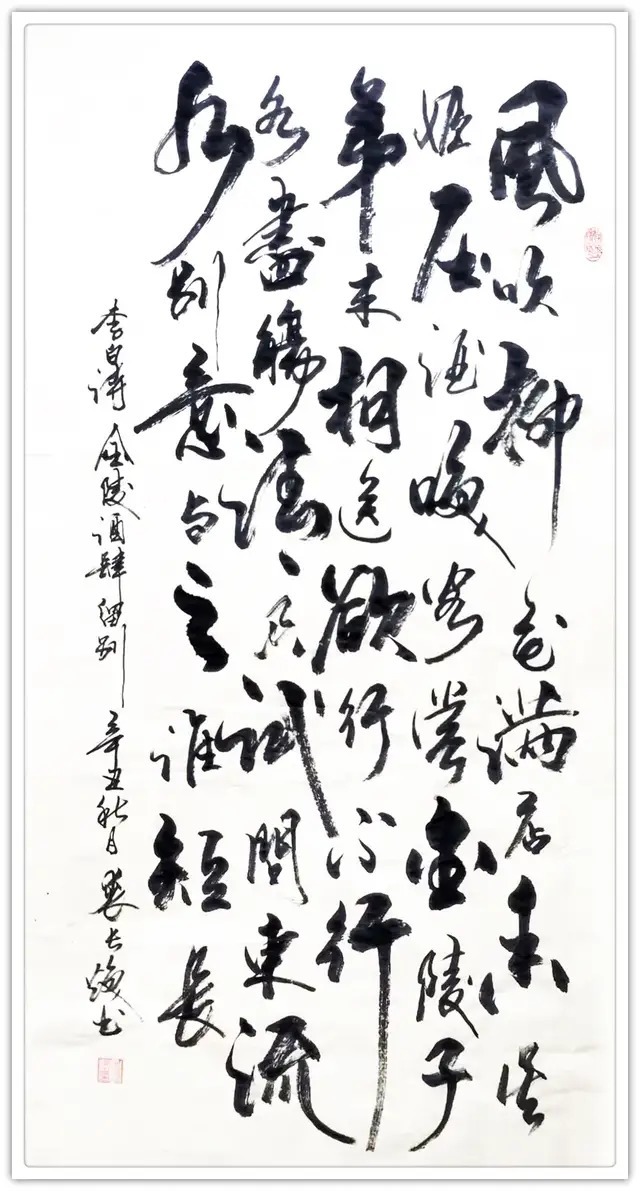 風吹柳花滿店香吴
姬压酒唤客嘗金陵子
弟来相送欲行不行
各盡觴請君試問東流
水别意与之誰短長
李白诗 金陵酒肆留别 辛丑秋月 长焕书